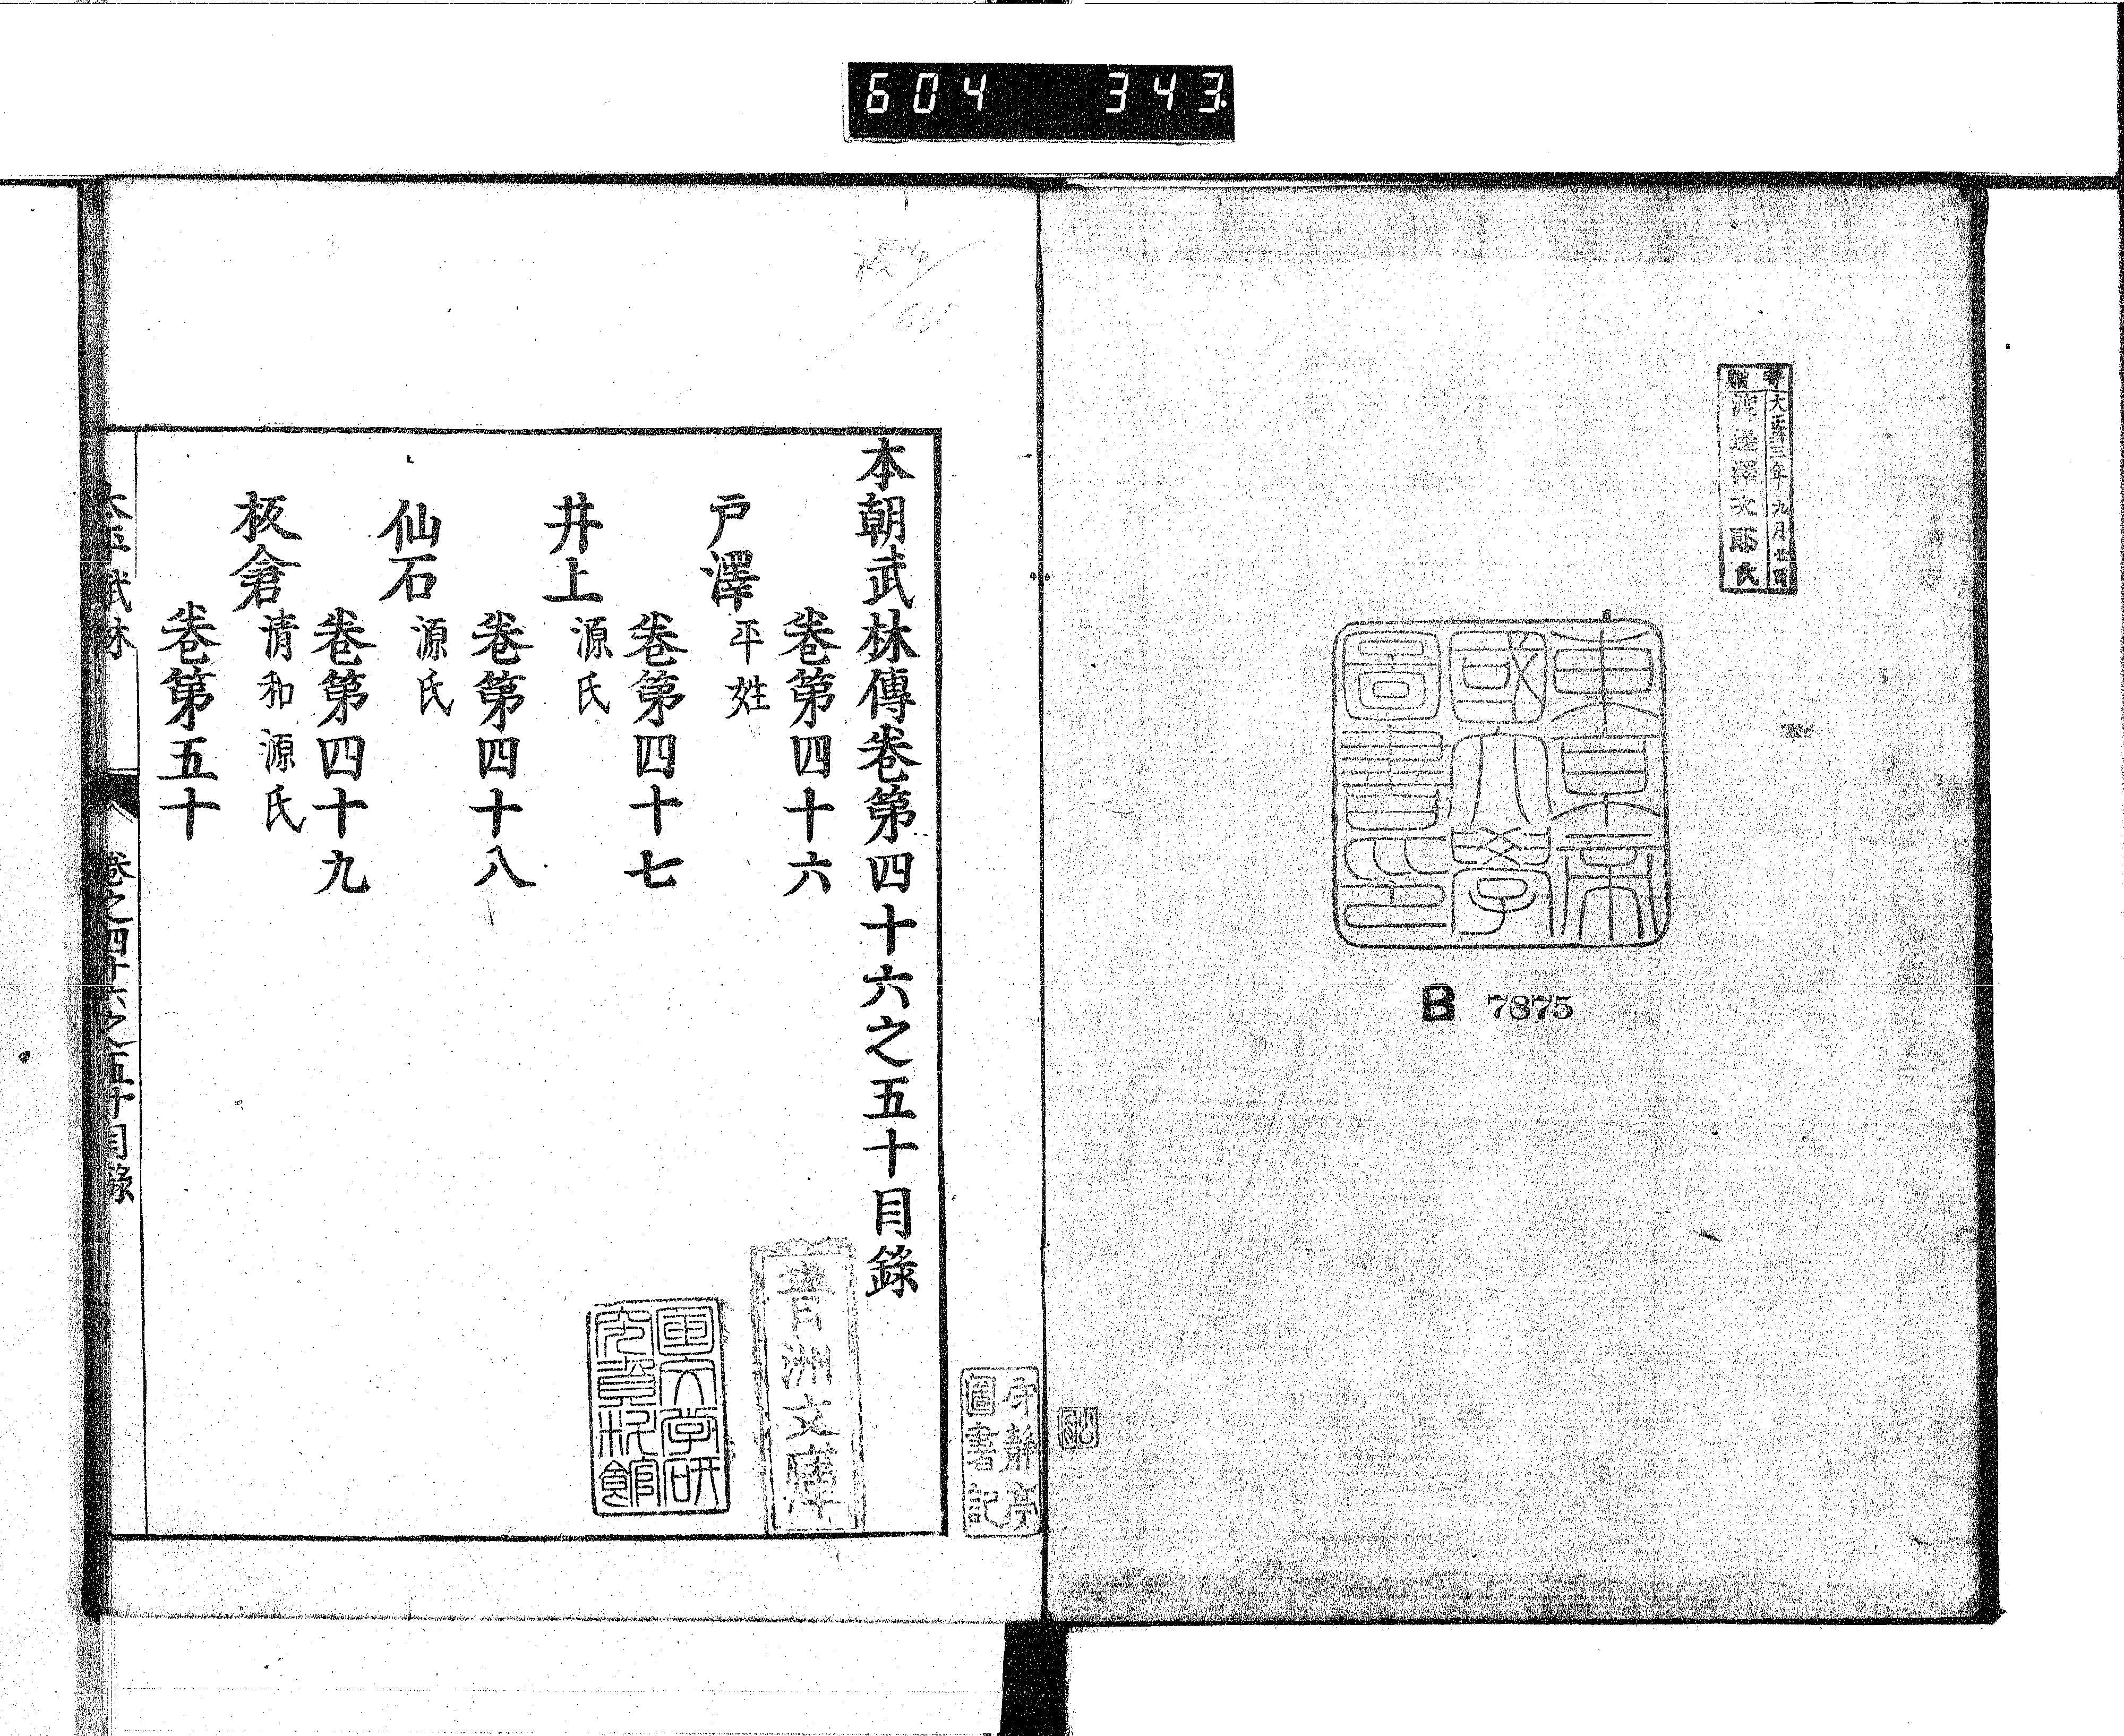 604 343
寄贈
大正十三年九月廿日
渡邊澤次郎氏
東京帝
國大學
圖書之印
B 7875
守静亭
圖書記
本朝武林傳卷第四十六之五十目錄
卷第四十六
戸澤 平姓
卷第四十七
井上 源氏
卷第四十八
仙石 源氏
卷第四十九
板倉 清和源氏
卷第五十
青洲文庫
国文学研
究資料館
本朝武林 卷之四十六之五十目錄